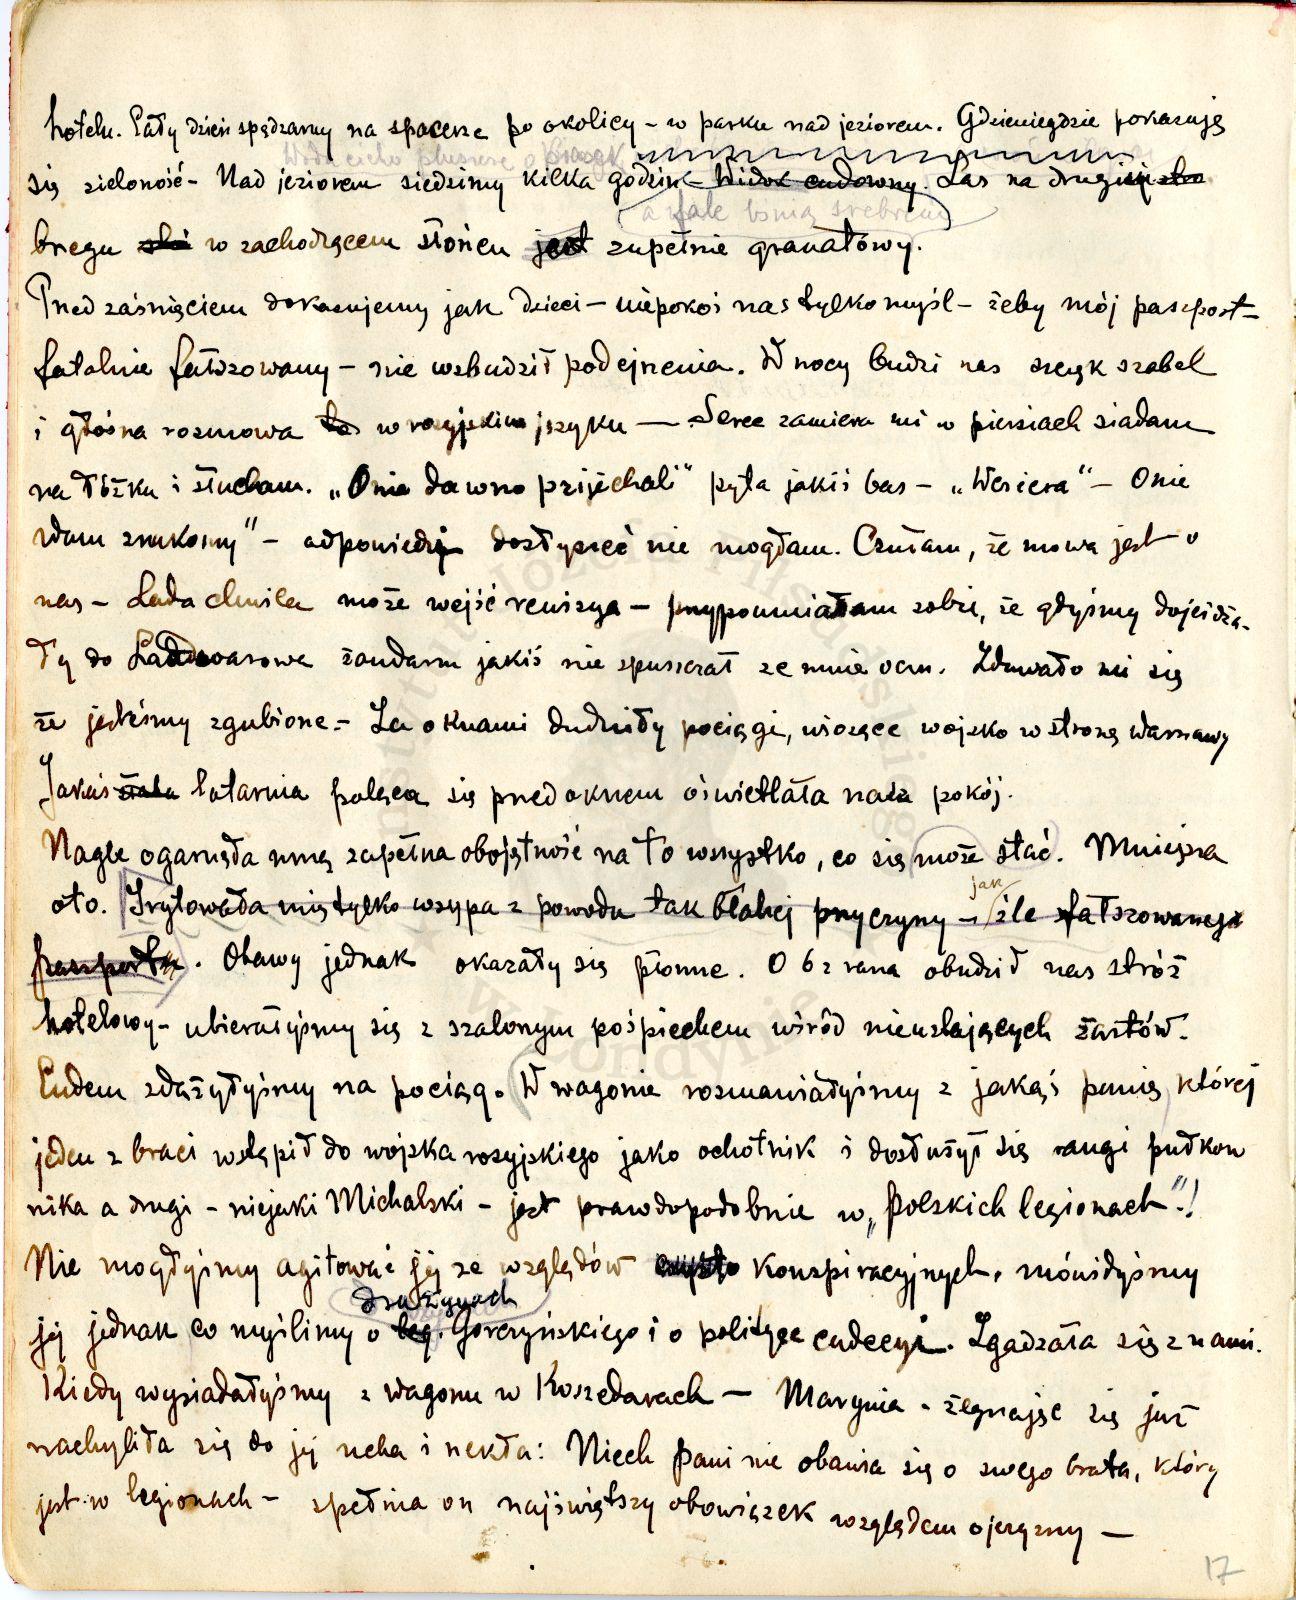 hotelu. Cały dzień spędzamy na spacerze po okolicy – w parku nad jeziorem. Gdzieniegdzie pokazują
Woda cicho pluszcze o
się zieloność – Nad jeziorem siedzimy kilka godzin – Widok cudowny. Las na drugiej
a fale lśnią srebrem
brzegu w zachodzącem słońcu jest zupełnie granatowy.
Przed zaśnięciem dokazujemy jak dzieci – niepokoi nas tylko myśl – żeby mój paszport –
fatalnie fałszowany – nie wzbudził podejrzenia. W nocy budzi nas szczęk szabel
i głośna rozmowa w rosyjskim języku — Serce zamiera mi w piersiach siadam
na łóżku i słucham. „Onie dawno prijechali" pyta jakiś bas – „Wsiera" – Onie
wdam znakomy" – odpowiedzi dosłyszeć nie mogłam. Czułam, że mowa jest o
nas – Lada chwila może wejść rewizya – przypomniałam sobie, że gdyśmy dojeżdża-
ły do Landwarowa żandarm jakiś nie spuszczał ze mnie oczu. Zdawało mi się
że jesteśmy zgubione – Za oknami dudniły pociągi, wiozące wojsko w stronę Warszawy
Jakaś latarnia paląca się przed oknem oświetlała nasz pokój.
Nagle ogarnęła mnię zupełna obojętność na to wszystko, co się może stać. Mniejsza
oto. Irytowała mię tylko wsypa z powodu tak błahej przyczyny – jak źle fałszowanego
paszportu. Obawy jednak okazały się płonne. O 6 z rana obudził nas stróż
hotelowy – ubierałyśmy się z szalonym pośpiechem wśród nieustających żartów.
Cudem zdążyłyśmy na pociąg. W wagonie rozmawiałyśmy z jakąś panią której
jeden z braci wstąpił do wojska rosyjskiego jako ochotnik i dosłużył się rangi pułkow
nika a drugi – niejaki Michalski – jest prawdopodobnie w „Polskich legionach"!
Nie mogłyśmy agitować jej ze względów czysto konspiracyjnych, mówiłyśmy
drużynach
jej jednak co myślimy o leg. Gorczyńskiego i o polityce endecyi. Zgadzała się z nami.
Kiedy wysiadałyśmy z wagonu w Koszedarach — Marynia – żegnając się już
nachyliła się do jej ucha i rzekła: Niech pani nie obawia się o swego brata, który
jest w legionach – spełnia on najświętszy obowiązek względem ojczyzny —
17